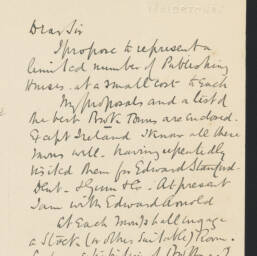 Dear Sir
I propose to represent a
limited number of Publishing
Houses at a small cost to each
My proposals and a list of
the best Book Towns are enclosed.
Except Ireland I know all these
towns well - having repeatedly
visited them for Edward Stanford.
Dent - & Co. - At present
I am with Edward Arnold
At each town I shall engage
a Stock (or other suitable) Room.